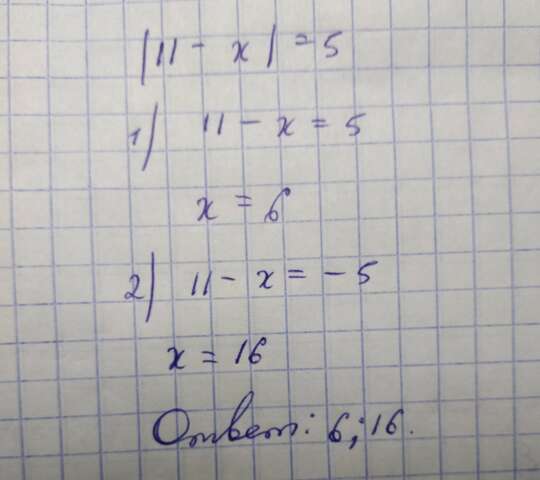 |11 - x| = 5
1) 11 - x = 5
x = 6
2) 11 - x = -5
x = 16
Ответ: 6; 16.